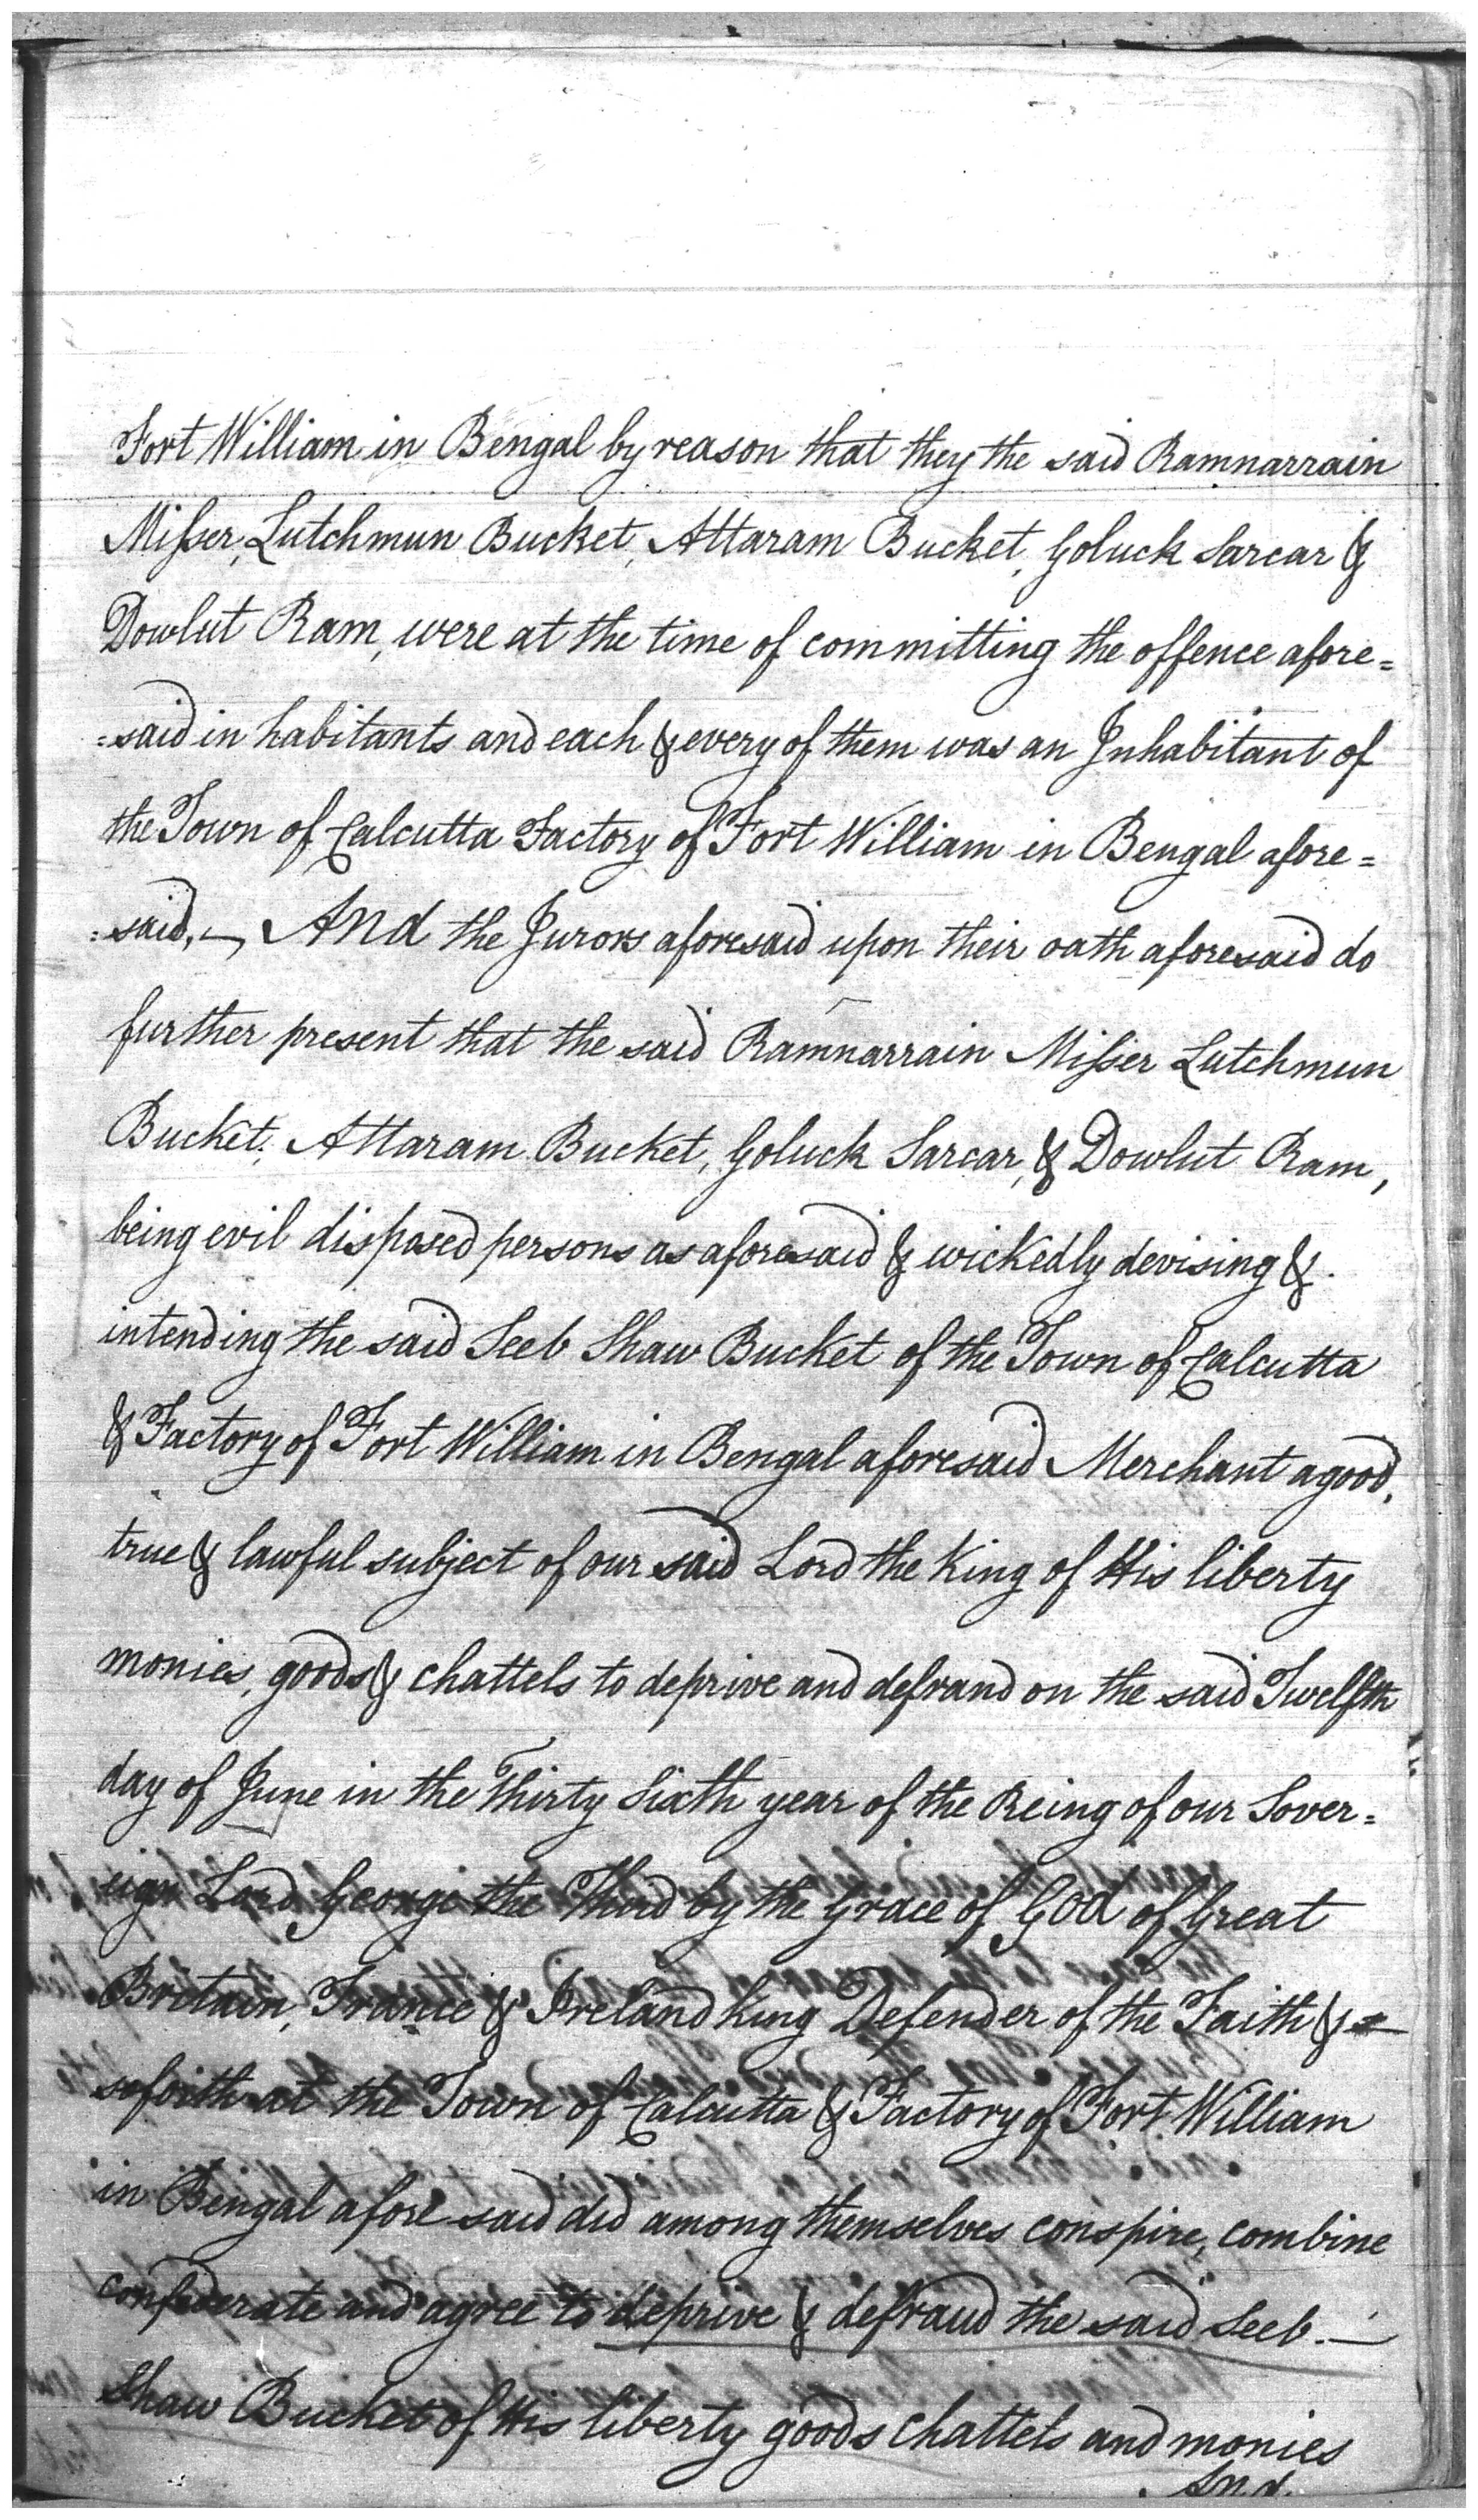 Fort William in Bengal by reason that they the said Ramnarrain
Misser, Lutchmun Bucket, Attaram Bucket, Goluck Sarcar &
Dowlut Ram, were at the time of committing the offence afore=
=said in habitants and each & every of them was an Inhabitant of
the Town of Calcutta Factory of Fort William in Bengal afore=
=said, — And the Jurors aforesaid upon their oath aforesaid do
further present that the said Ramnarrain Misser Lutchmun
Bucket, Attaram Bucket, Goluck Sarcar, & Dowlut Ram,
being evil disposed persons as aforesaid & wickedly devising &
intending the said Seeb Shaw Bucket of the Town of Calcutta
& Factory of Fort William in Bengal aforesaid Merchant a good,
true & lawful subject of our said Lord the King of His liberty
monies, goods & chattels to deprive and defraud on the said Twelfth
day of June in the Thirty Sixth year of the Reing of our Sover=
eign Lord George the Third by the Grace of God of Great
Britain, France & Ireland King Defender of the Faith & —
soforth at the Town of Calcutta & Factory of Fort William
in Bengal afore said did among themselves conspire, combine
confederate and agree to deprive & defraud the said Seeb. —
Shaw Bucket of His liberty goods chattels and monies
And.